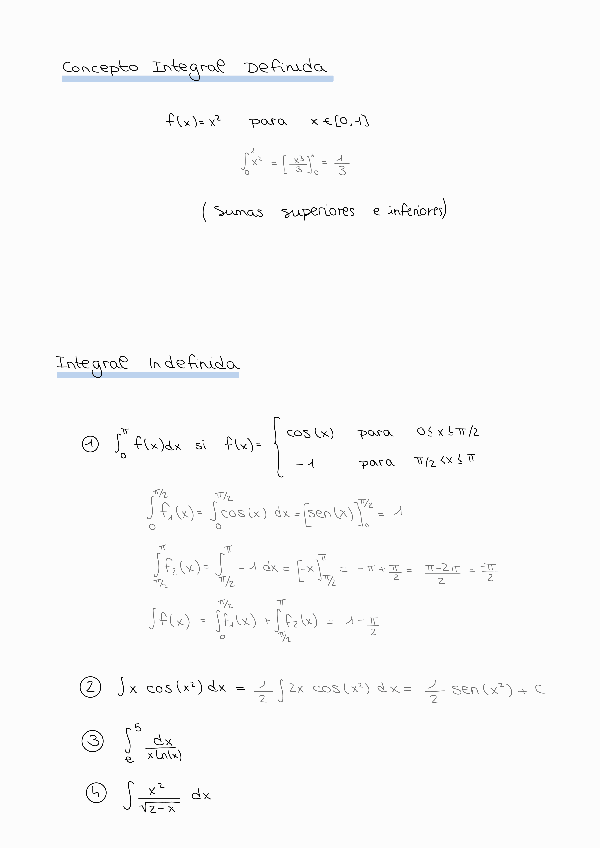 Concepto Integral Definida
f(x)=x² para x∈[0,1]
∫₀¹ x² = [x³/3]₀¹ = 1/3
(sumas superiores e inferiores)
Integral Indefinida
① ∫₀^π f(x)dx si f(x)= { cos(x) para 0≤x≤π/2
-1 para π/2<x≤π
∫₀^{π/2} f₁(x) = ∫₀^{π/2} cos(x) dx = [sen(x)]₀^{π/2} = 1
∫_{π/2}^π f₂(x) = ∫_{π/2}^π -1 dx = [-x]_{π/2}^π = -π+π/2 = π-2π/2 = -π/2
∫f(x) = ∫₀^{π/2} f₁(x) + ∫_{π/2}^π f₂(x) = 1-π/2
② ∫x cos(x²) dx = 1/2 ∫2x cos(x²) dx = 1/2 · sen(x²) + C
③ ∫ₑ⁵ dx/(x ln(x))
④ ∫ x²/√(2-x) dx